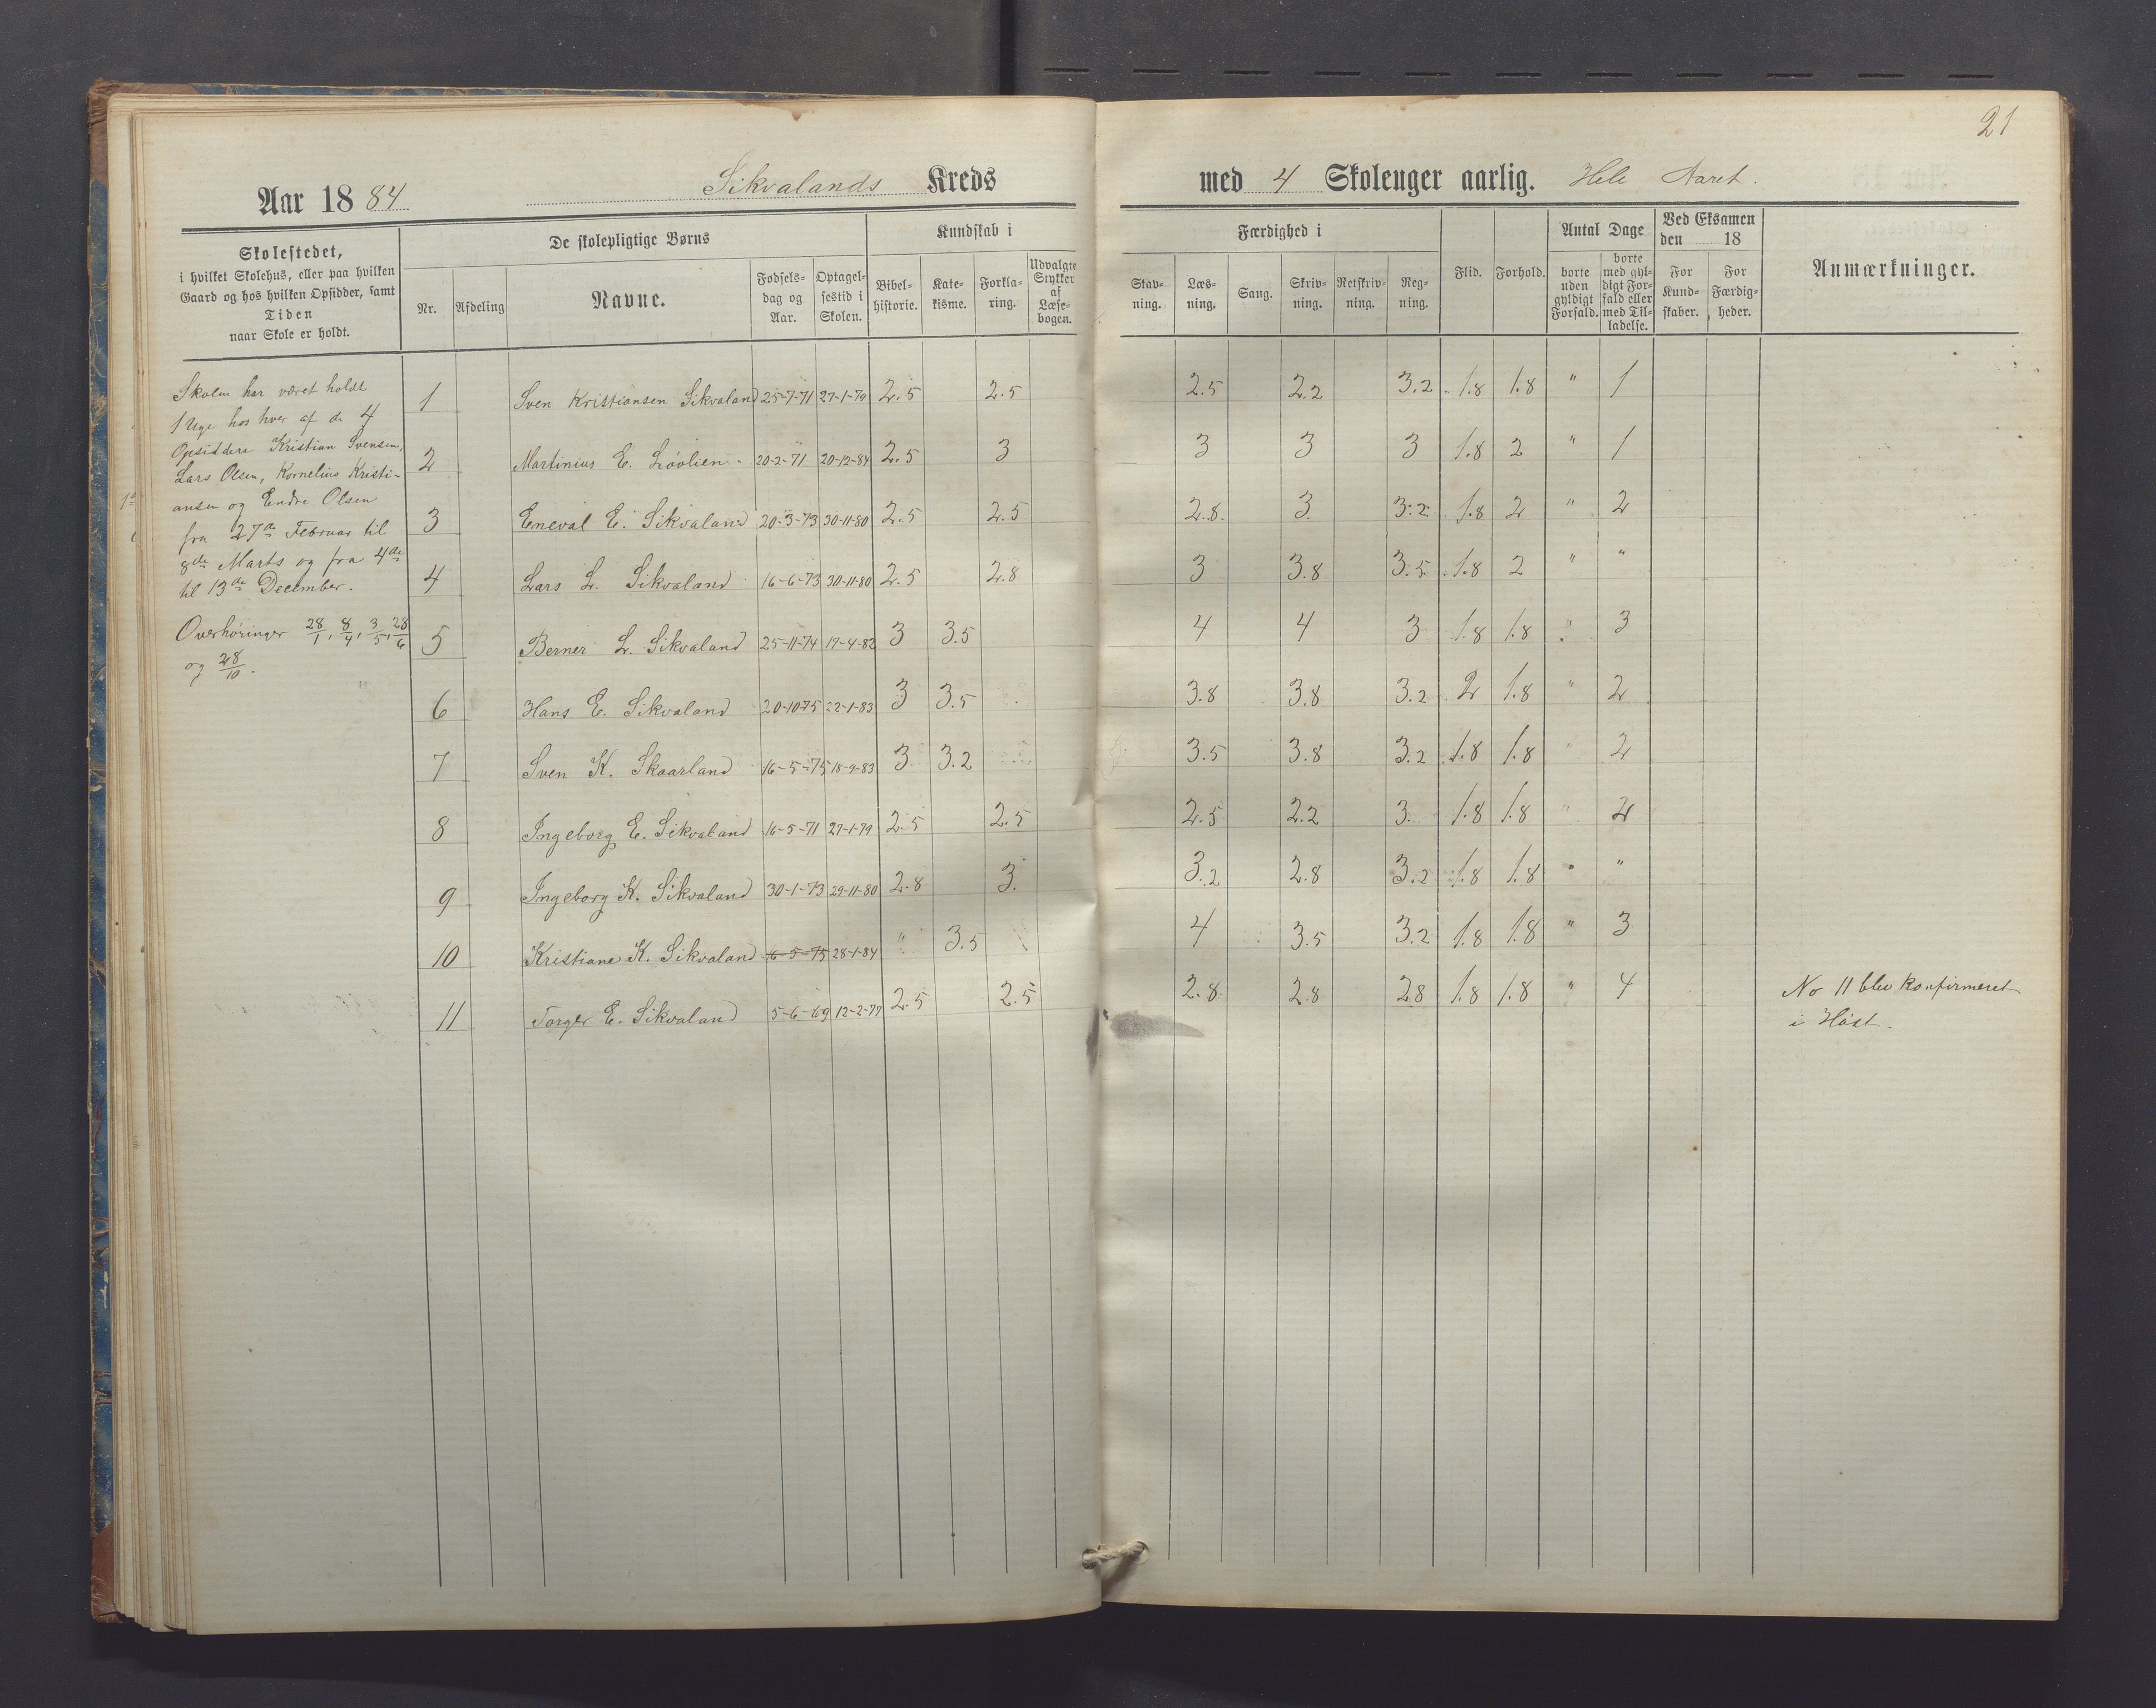 21
Aar 1884 Sikvalands Kreds med 4 Skoleuger aarlig. Hele Aaret.
Skolestedet,
i hvilket Skolehus, eller paa hvilken
Gaard og hos hvilken Opsidder, samt
Tiden
naar Skole er holdt.
De skolepligtige Børns
Nr. Afdeling Navne. Fødsels-dag og Aar. Optagel-sestid i Skolen.
Kundskab i
Bibel-historie. Kate-kisme. Forkla-ring. Udvalgte Stykker af Læse-bogen.
Færdighed i
Stav-ning. Læs-ning. Sang. Skriv-ning. Retskriv-ning. Reg-ning.
Flid. Forhold.
Antal Dage
borte uden gyldigt Forfald. borte med gyl-digt For-fald eller med Til-ladelse.
Ved Eksamen
den 18
For Kund-skaber. For Færdig-heder.
Anmærkninger.
Skolen har været holdt
1 Uge hos hver af de 4
Opsiddere Kristian Svensen,
Lars Olsen, Kornelius Kristi-
ansen og Endre Olsen
fra 27de Februar til
8de Marts og fra 4de
til 13de December.
Overhøringer 28/1, 8/4, 3/5, 28/6
og 28/10.
1 Sven Kristiansen Sikvaland 25-7-71 27-1-79 2.5 2.5 2.5 2.2 3.2 1.8 1.8 " 1
2 Martinius E. Løvlien 20-2-71 20-12-84 2.5 3 3 3 3 1.8 2 " 1
3 Eneval E. Sikvaland 20-3-73 30-11-80 2.5 2.5 2.8 3 3.2 1.8 2 " 2
4 Lars L. Sikvaland 16-6-73 30-11-80 2.5 2.8 3 3.8 3.5 1.8 2 " "
5 Berner L. Sikvaland 25-11-74 17-4-82 3 3.5 4 4 3 1.8 1.8 " 3
6 Hans E. Sikvaland 20-10-75 22-1-83 3 3.5 3.8 3.8 3.2 2 1.8 " 2
7 Sven K. Skaarland 16-5-75 18-9-83 3 3.2 3.5 3.8 3.2 1.8 1.8 " 2
8 Ingeborg E. Sikvaland 16-5-71 27-1-79 2.5 2.5 2.5 2.2 3 1.8 1.8 " 2
9 Ingeborg K. Sikvaland 30-1-73 29-11-80 2.8 3 3.2 2.8 3.2 1.8 1.8 " "
10 Kristiane K. Sikvaland 16-5-75 28-1-84 " 3.5 4 3.5 3.2 1.8 1.8 " 3
11 Torger E. Sikvaland 5-6-69 12-2-77 2.5 2.5 2.8 2.8 2.8 1.8 1.8 " 4 No 11 blev konfirmeret
i Høst.